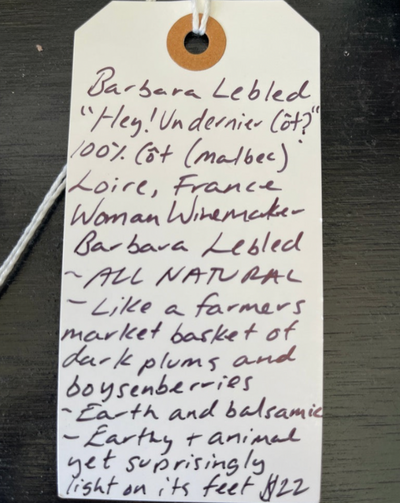 Barbara Lebled
"Hey! Un dernier Côt?"
100% Côt (malbec)
Loire, France
Woman Winemaker
Barbara Lebled
~ ALL NATURAL
~ Like a farmers
market basket of
dark plums and
boysenberries
~ Earth and balsamic
~ Earthy + animal
yet suprisingly
light on its feet $22